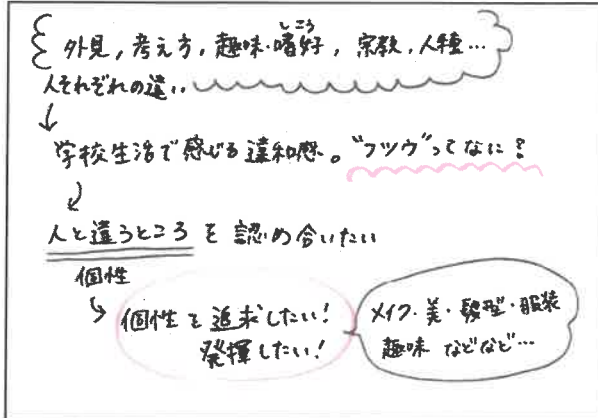 しこう
外見, 考え方, 趣味・嗜好, 宗教, 人種…
人それぞれの違い
↓
学校生活で感じる違和感。"フツウ"ってなに?
↓
人と違うところ を 認め合いたい
個性
↳ 個性を追求したい!
発揮したい!
メイク・美・髪型・服装
趣味 などなど…